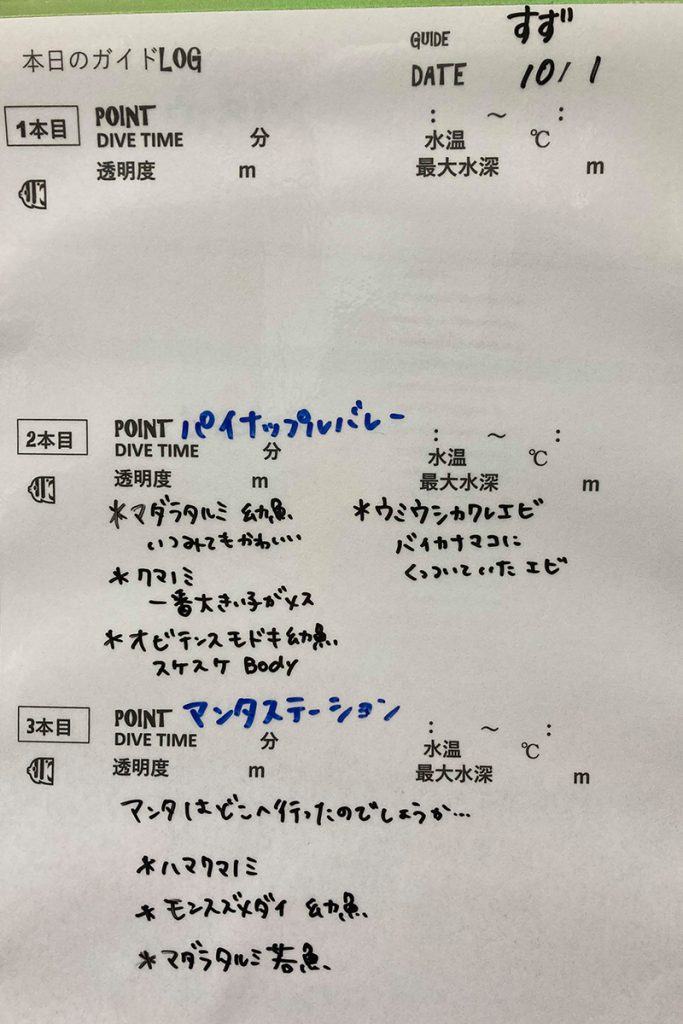 本日のガイドLOG
GUIDE すず
DATE 10/1
1本目 POINT : ～ :
DIVE TIME 分 水温 ℃
透明度 m 最大水深 m
2本目 POINT パイナップルバレー : ～ :
DIVE TIME 分 水温 ℃
透明度 m 最大水深 m
*マダラタルミ 幼魚
いつみてもかわいい
*クマノミ
一番大きい子がメス
*オビテンスモドキ幼魚
スケスケ Body
*ウミウシカクレエビ
バイカナマコに
くっついていたエビ
3本目 POINT マンタステーション : ～ :
DIVE TIME 分 水温 ℃
透明度 m 最大水深 m
マンタはどこへ行ったのでしょうか…
*ハマクマノミ
*モンスズメダイ 幼魚
*マダラタルミ若魚